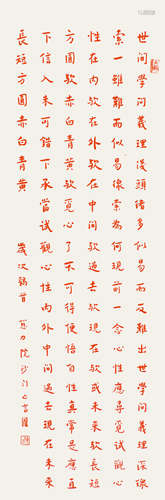 世間學問義理淺頭緒多似易而反難出世學問義理深線
索一雖難而似易線索為何現前一念心性應尋覓試觀心
性在內歟在外歟在中間歟過去歟現在歟或未來歟長短
方圓歟赤白青黃歟覓心了不可得便悟自性真常是應直
下信入未可錯下承當試觀心性內外中間過去現在未來
長短方圓赤白青黃 歲次鶉首 院沙門亡言